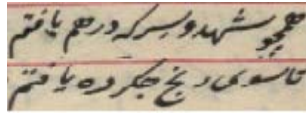 همچو شهد و سرکه در هم یافتم
تا سوی رنج جگر ره یافتم